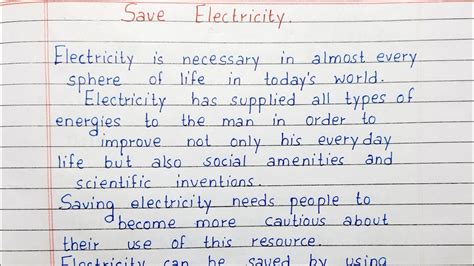 Save Electricity.
Electricity is necessary in almost every
sphere of life in today's world.
Electricity has supplied all types of
energies to the man in order to
improve not only his everyday
life but also social amenities and
scientific inventions.
Saving electricity needs people to
become more cautious about
their use of this resource.
Electricity can be saved by using